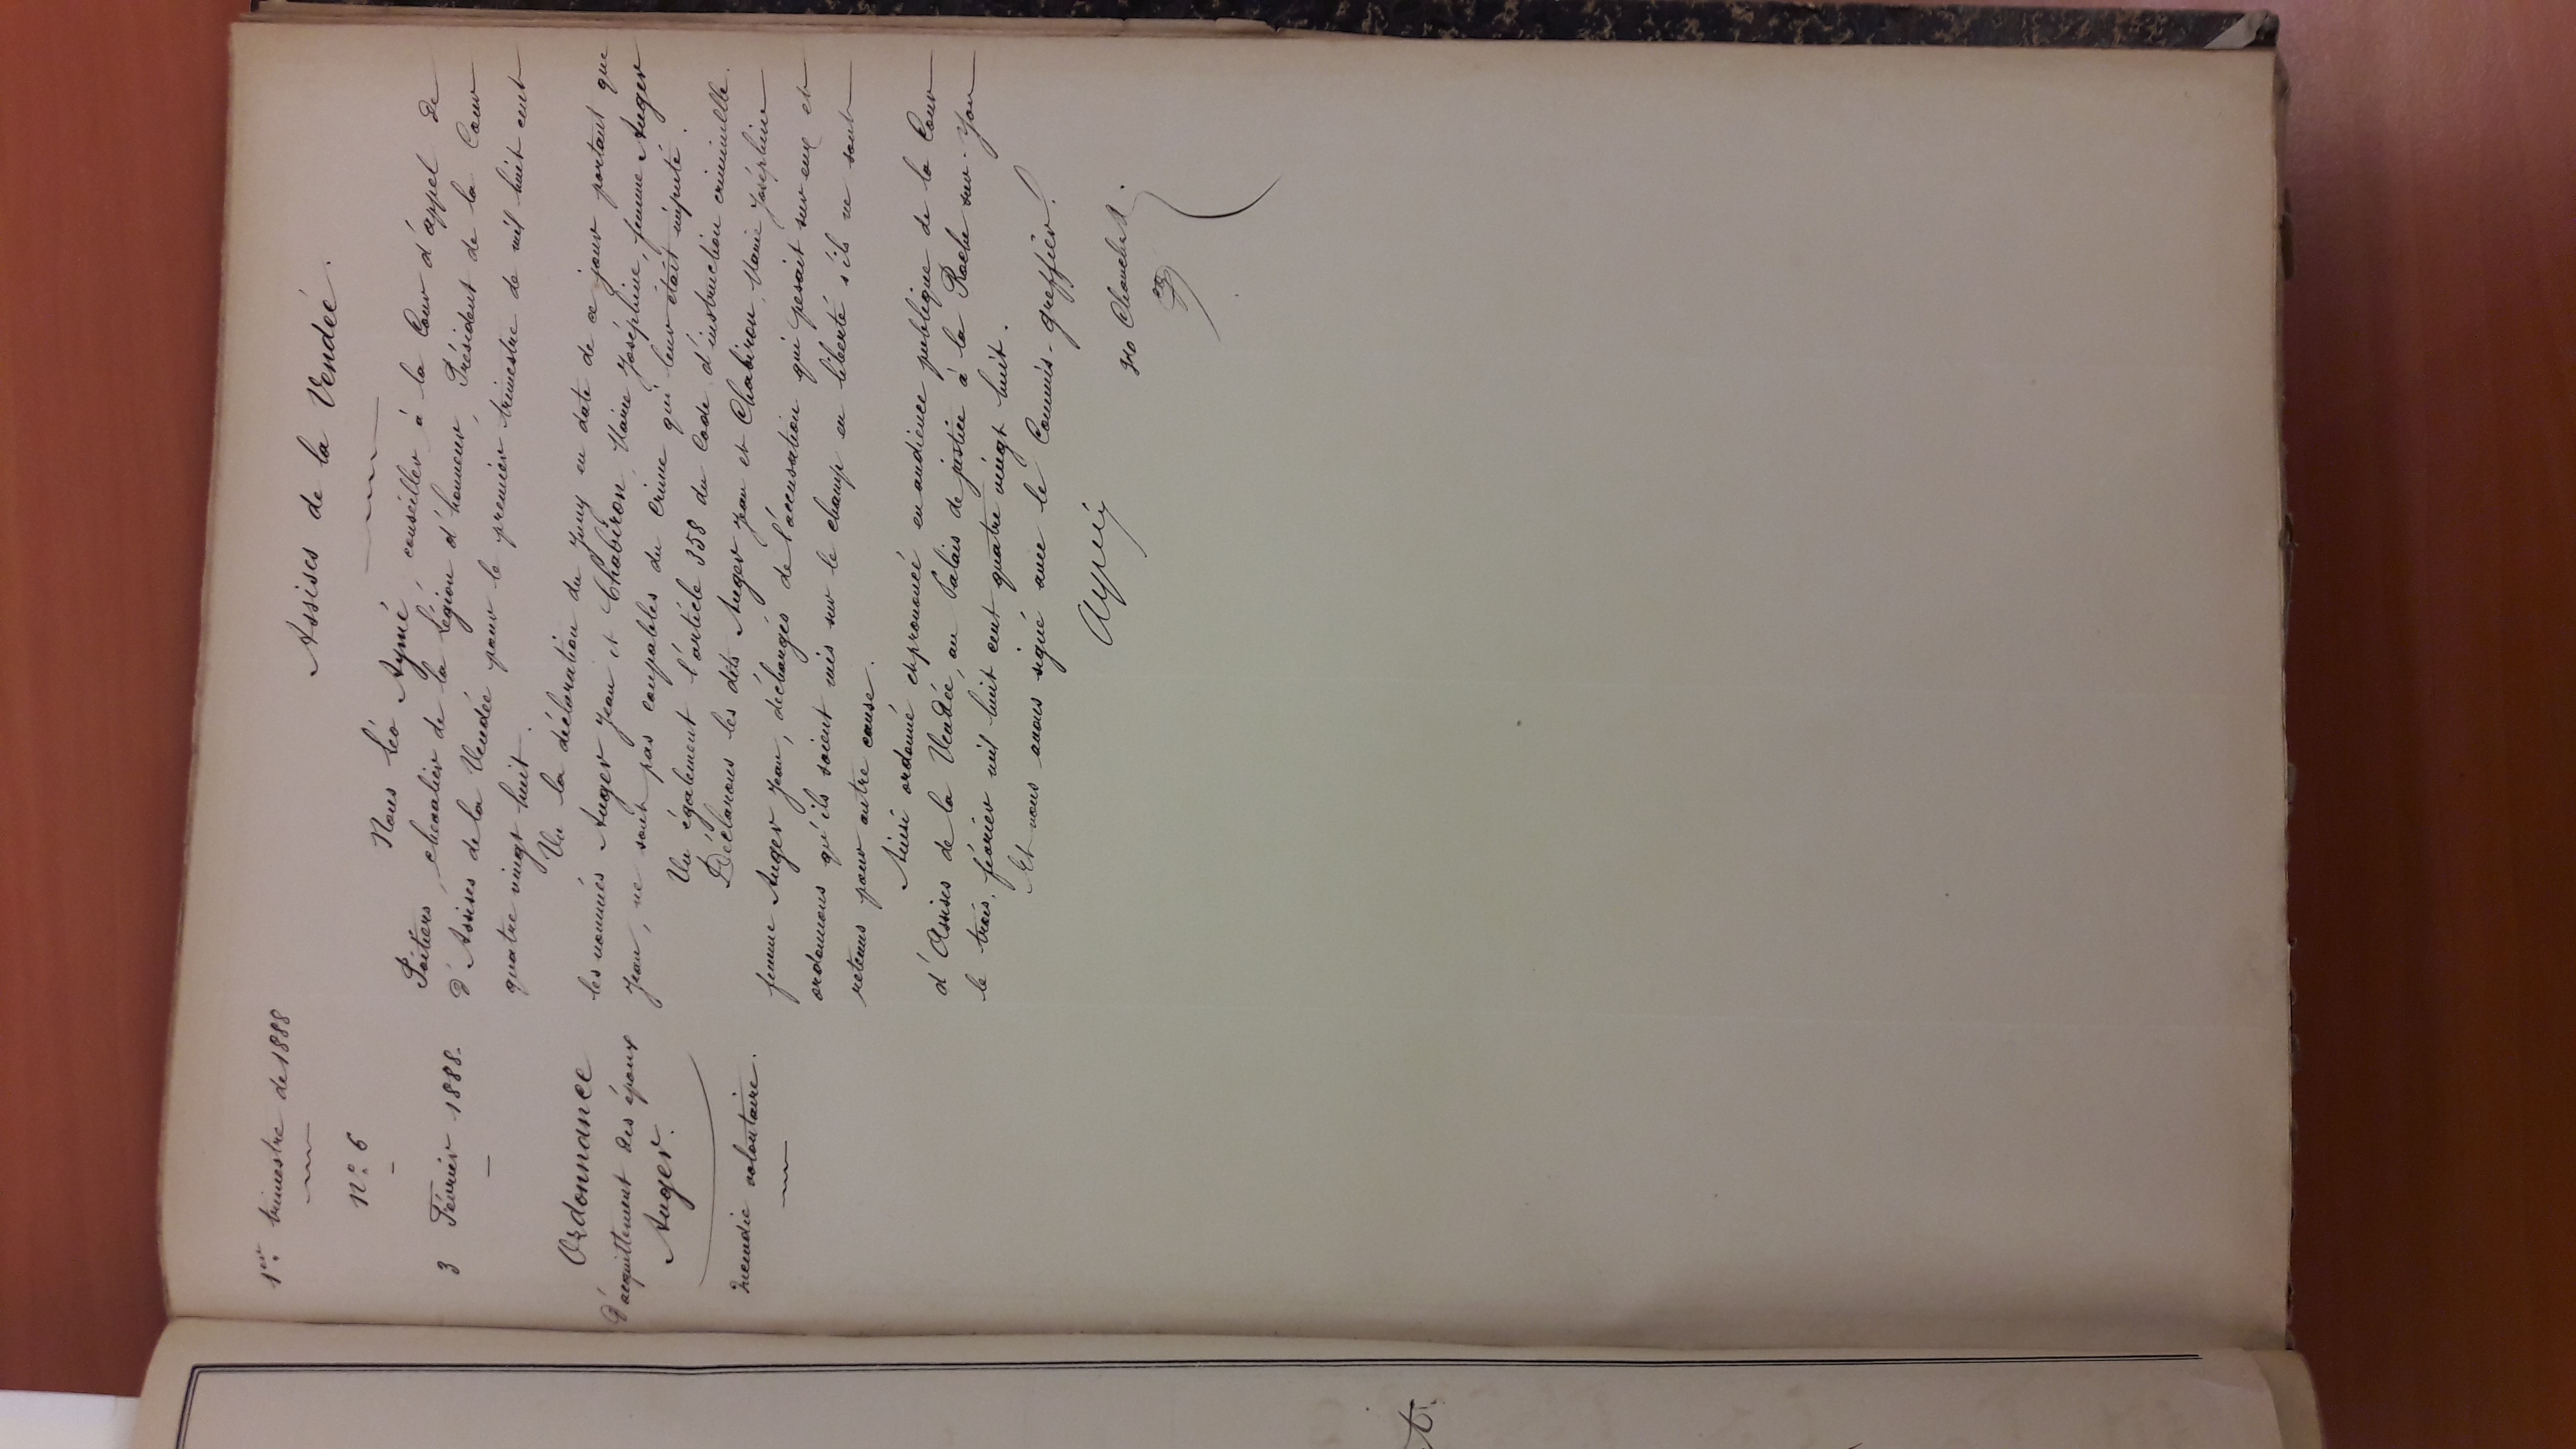 1er trimestre de 1888
n° 6
3 Février 1888.
Ordonnance
d'acquittement des époux
Auger.
Incendie volontaire.
Assises de la Vendée.
Nous Léo Aymé, conseiller à la Cour d'appel de
Poitiers, chevalier de la Légion d'honneur, Président de la Cour
d'Assises de la Vendée pour le premier trimestre de mil huit cent
quatre vingt huit.
Vu la déclaration du Jury en date de ce jour portant que
les nommés Auger Jean et Chabiron, Marie Joséphine, femme Auger
Jean, ne sont pas coupables du crime qui leur était imputé.
Vu également l'article 358 du Code d'instruction criminelle.
Déclarons les dits Auger Jean et Chabiron, Marie Joséphine
femme Auger Jean, déchargés de l'accusation qui pesait sur eux et
ordonnons qu'ils soient mis sur le champ en liberté s'ils ne sont
retenus pour autre cause.
Ainsi ordonné et prononcé en audience publique de la Cour
d'Assises de la Vendée, au Palais de justice à la Roche sur-Yon
le trois février mil huit cent quatre vingt huit.
Et nous avons signé avec le Commis-greffier.
Aymé